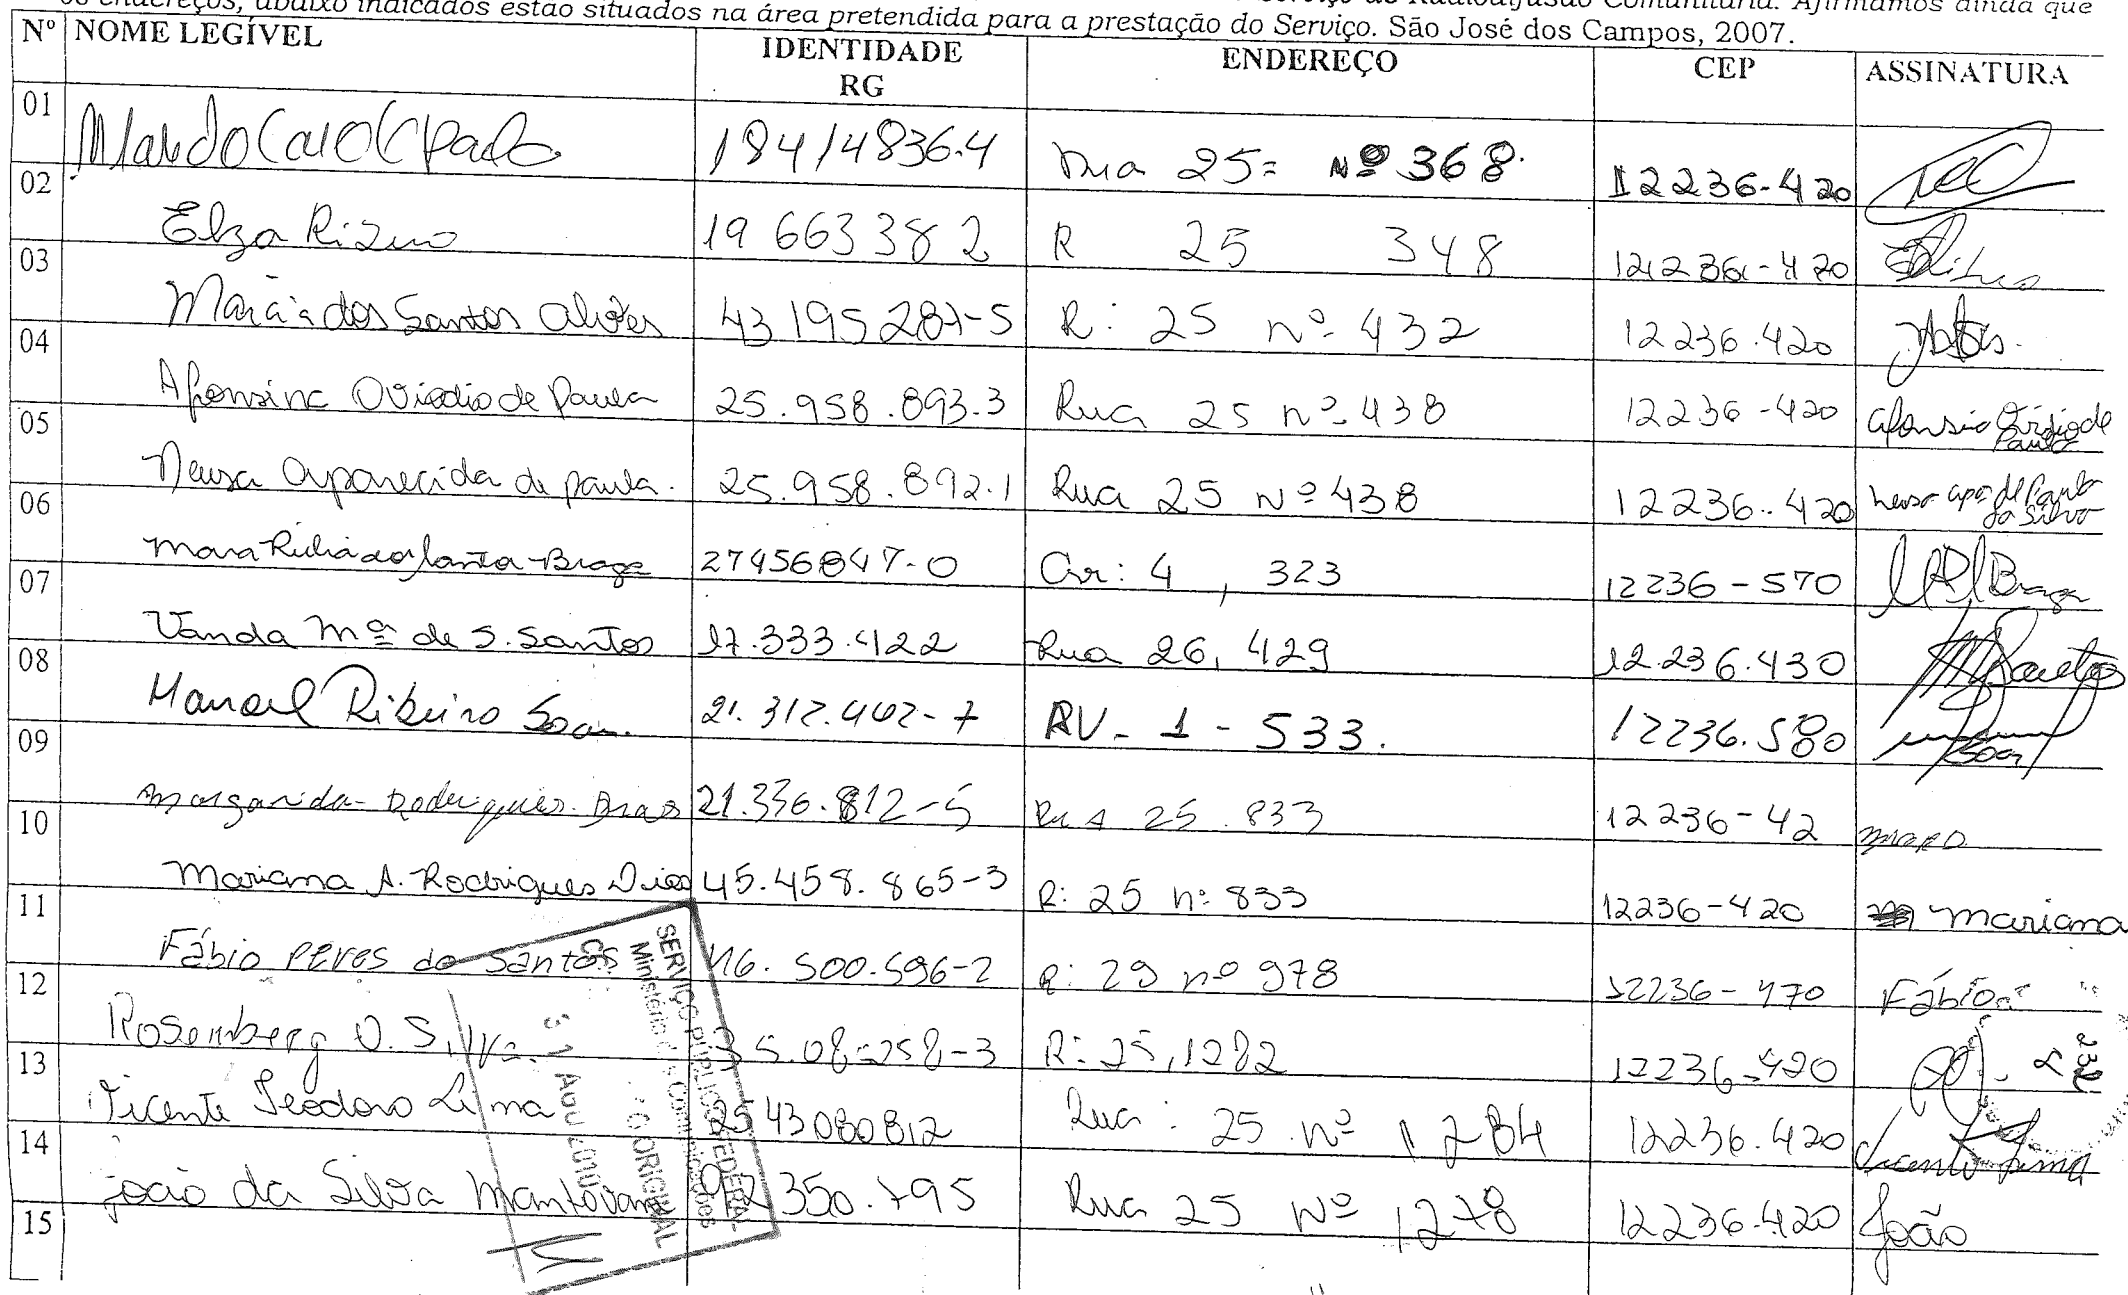 os endereços, abaixo indicados estão situados na área pretendida para a prestação do Serviço. São José dos Campos, 2007.
Serviço de Radiodifusão Comunitária. Afirmamos ainda que
Nº NOME LEGÍVEL IDENTIDADE RG ENDEREÇO CEP ASSINATURA
01 18414836.4 Rua 25= Nº 368. 12236-420
02 Elza 19 663382 R 25 348 12236-420
03 Marcia dos Santos Alves 43195287-5 R: 25 nº 432 12236.420
04 Afonsina Oviedio de Paula 25.958.893.3 Rua 25 nº 438 12236-420 de Paula
05 Neusa Aparecida de Paula. 25.958.892.1 Rua 25 Nº 438 12236-420 Neusa apª de Paula da Silva
06 Braga 27456847-0 4, 323 12236-570 Braga
07 Vanda Mª de S. Santos 17.333.422 Rua 26, 429 12.236.430 Santos
08 Manoel Ribeiro 21.312.402-7 AV. 1 - 533. 12236.580
09 Margarida Rodrigues Dias 21.336.812-5 Rua 25 833 12236-42
10 Mariana A. Rodrigues Dias 45.458.865-3 R: 25 nº 833 12236-420 Mariana
11 Fábio Peres do Santos 46.500.596-2 R: 29 nº 978 12236-470 Fábio
12 Rosemberg O. Silva R: 25, 1282 12236-420
13 Vicente Teodoro Lima 2543080812 Rua: 25 nº 1284 12236.420 Vicente Lima
14 João da Silva Mantovani 350.795 Rua 25 Nº 1278 12236-420 João
15
SERVIÇO PÚBLICO FEDERAL
Ministério das Comunicações
O ORIGINAL
31 AGO 2010
232